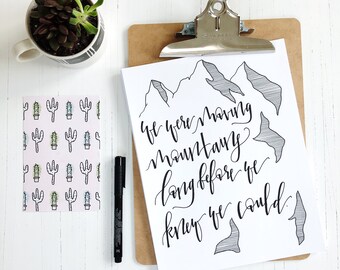 we were moving
mountains
long before we
knew we could.